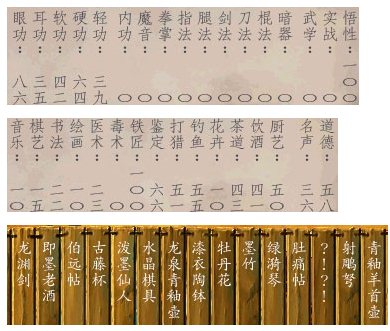 悟性：一〇〇
实战：〇
武学：〇
暗器：〇
棍法：〇
刀法：〇
剑法：〇
腿法：〇
指法：〇
拳掌：〇
魔音：〇
内功：〇
轻功：三九
硬功：六四
软功：四二
耳功：三五
眼功：八六
道德：五八
名声：三六
厨艺：五〇
饮酒：四一
茶道：四三
花卉：一〇
钓鱼：五五
打猎：五一
鉴定：六六
铁匠：一〇〇
毒术：〇
医术：二三
绘画：一〇
书法：二二
棋艺：一五
音乐：一〇
青釉羊首壶
射鵰弩
?!?!
肚痛帖
绿漪琴
墨竹
牡丹花
漆衣陶钵
龙泉青釉壶
水晶棋具
泼墨仙人
古藤杯
伯远帖
即墨老酒
龙渊剑